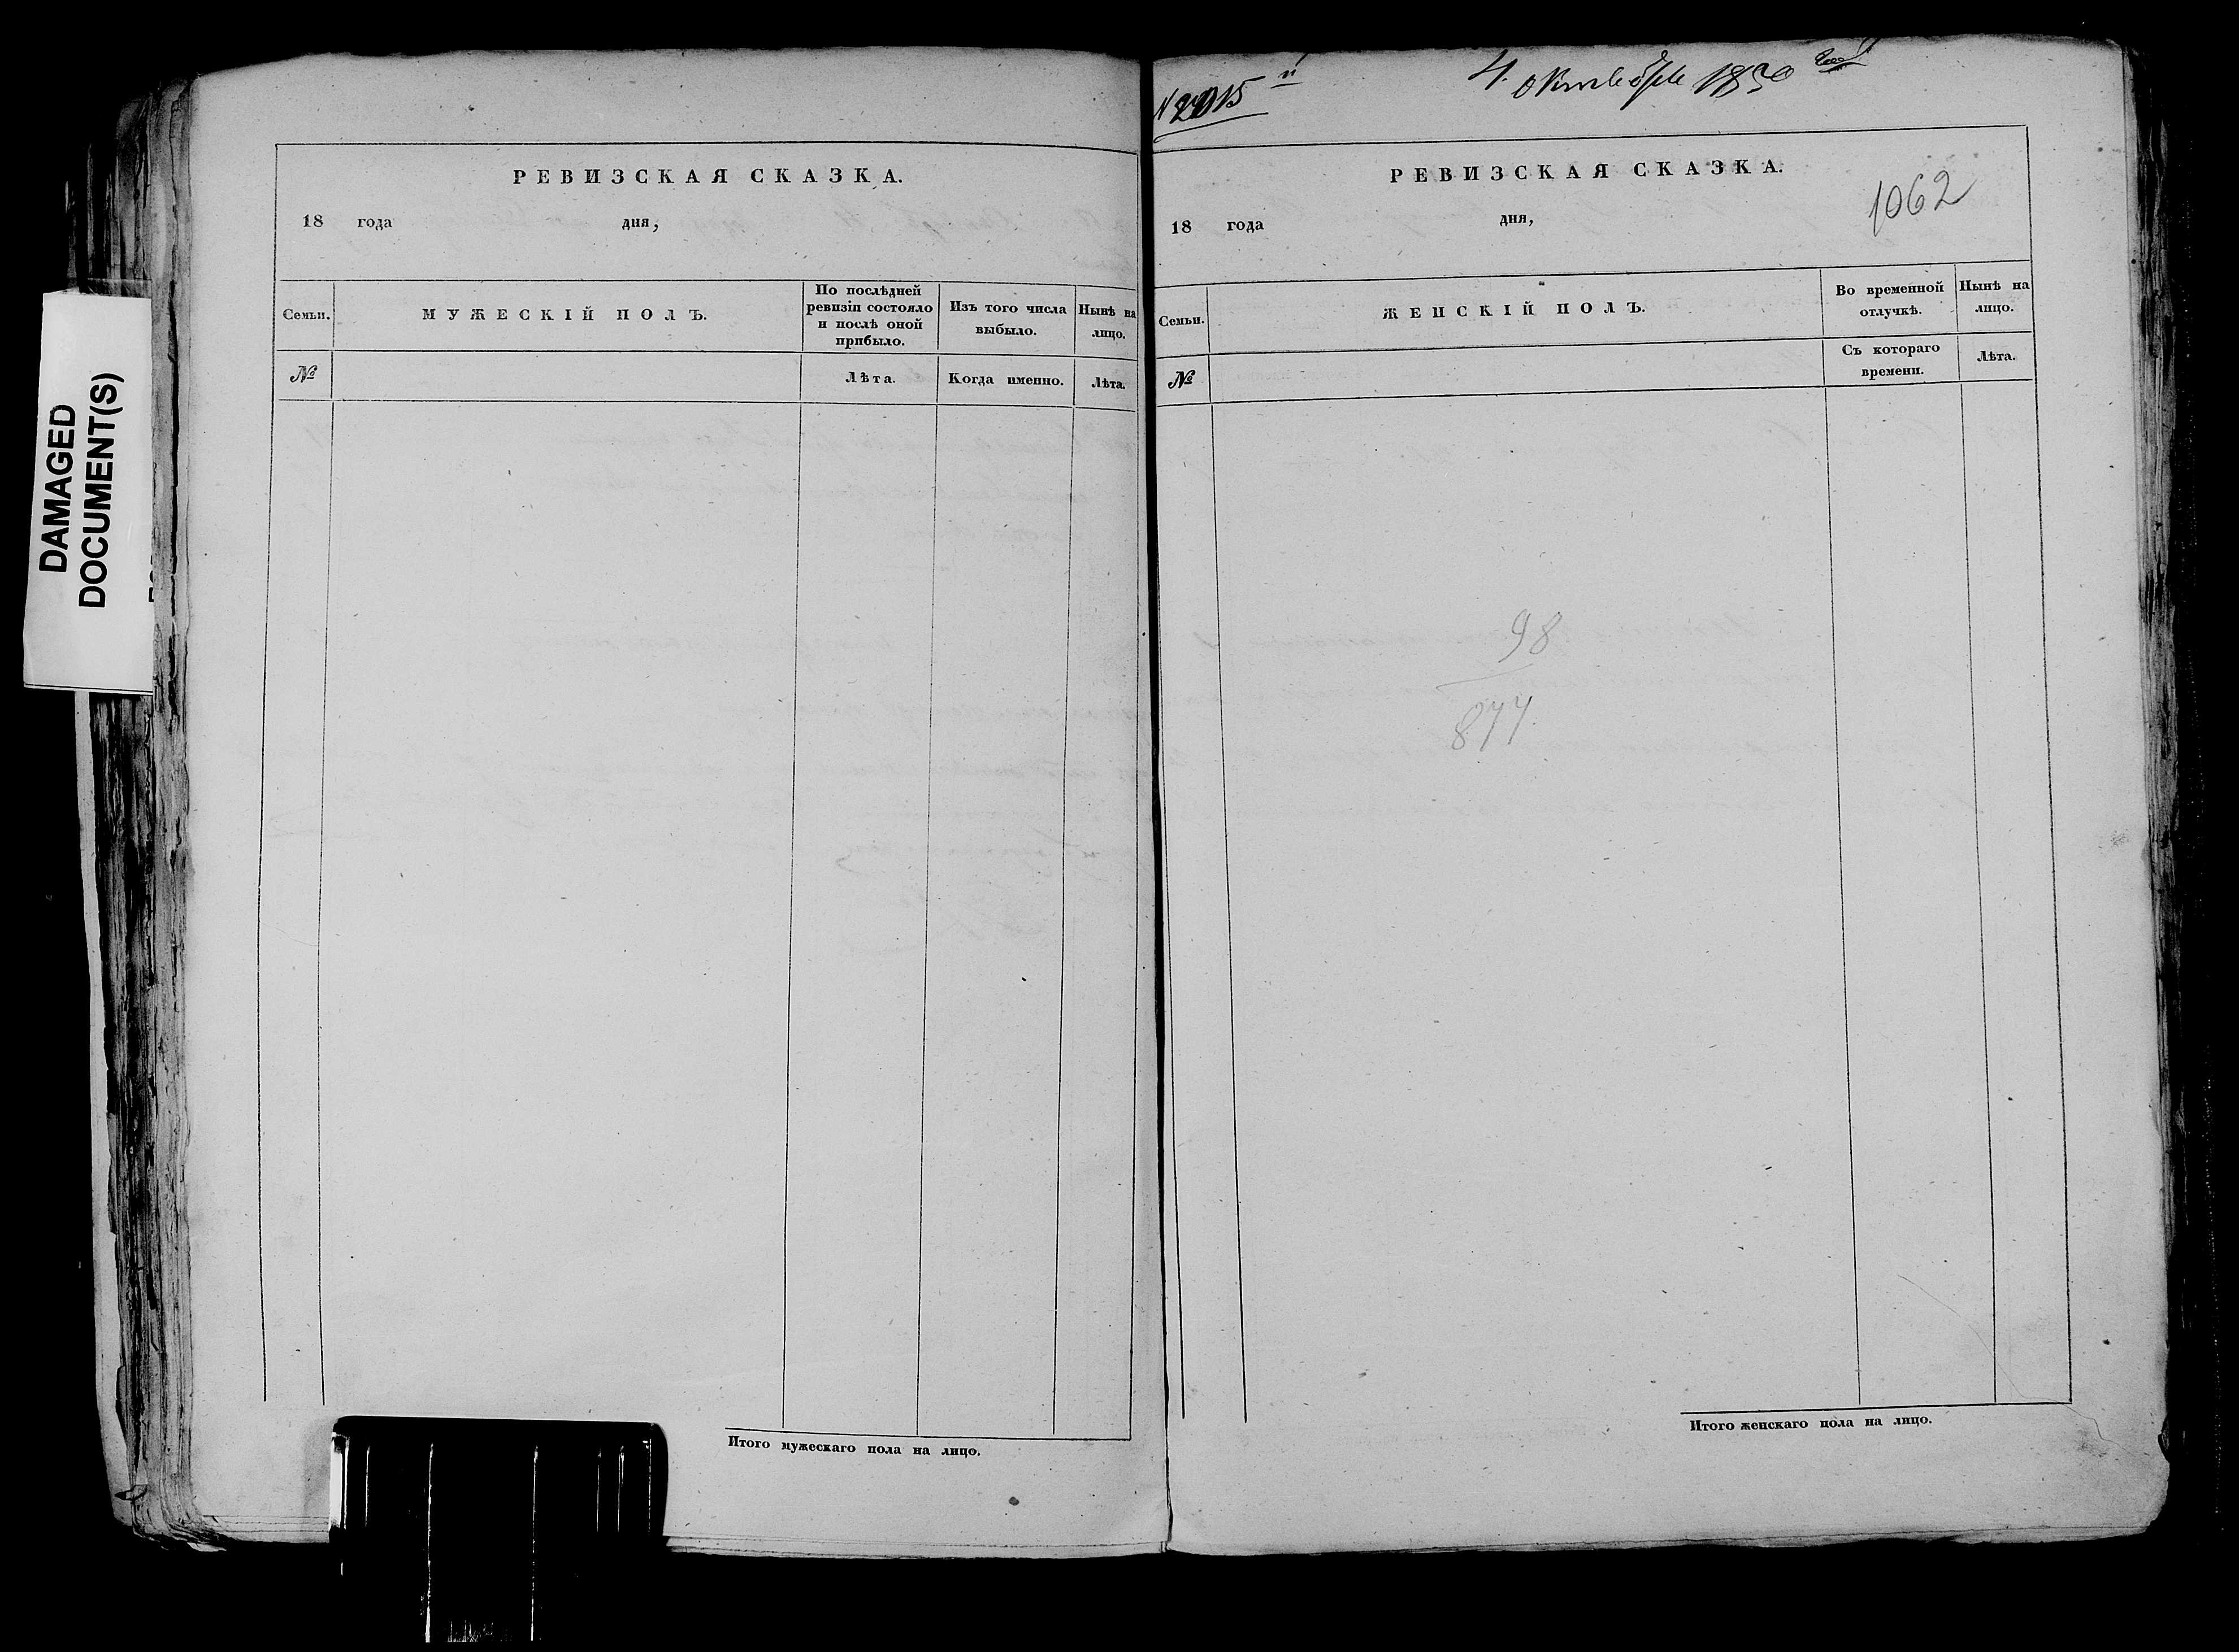 DAMAGED
DOCUMENT(S)
РЕВИЗСКАЯ СКАЗКА.
18 года дня,
Семьи.
МУЖЕСКІЙ ПОЛЪ.
По послѣдней
ревизіи состояло
и послѣ оной
прибыло.
Изъ того числа
выбыло.
Нынѣ на
лицо.
№
Лѣта.
Когда именно.
Лѣта.
Итого мужескаго пола на лицо.
4 октября 1850
РЕВИЗСКАЯ СКАЗКА.
1062
18 года дня,
Семьи.
ЖЕНСКІЙ ПОЛЪ.
Во временной
отлучкѣ.
Нынѣ на
лицо.
№
Съ котораго
времени.
Лѣта.
98
877
Итого женскаго пола на лицо.